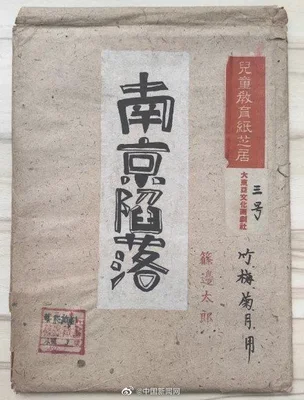 兒童教育紙芝居
大東亞文化画劇社
三号
竹梅菊月用
南京陥落
篠邉太郎
@中国新闻网